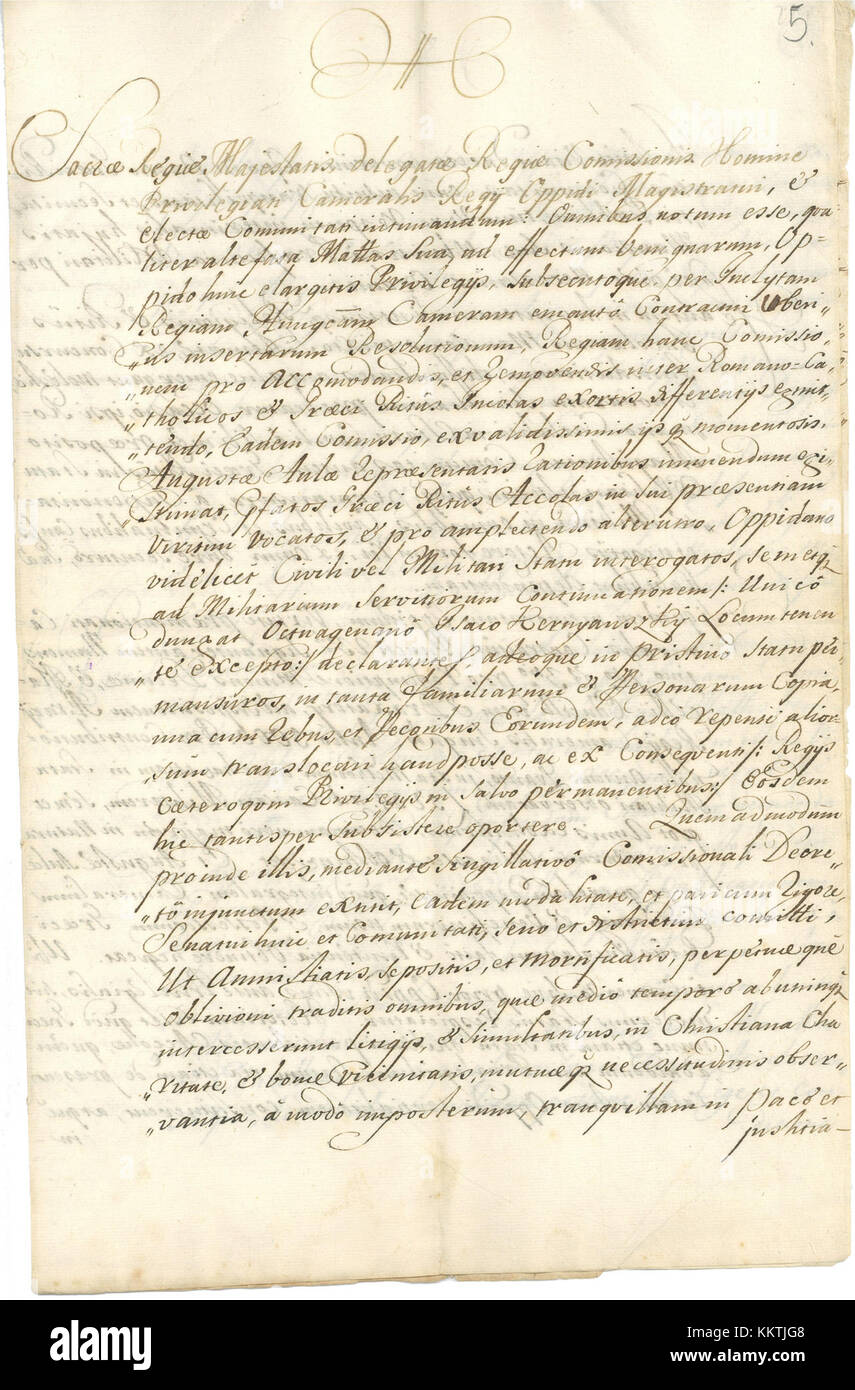 5.
Sacræ Regiæ Majestatis delegatæ Regiæ Comissionis Homine
Privilegiati Cameralis Regij Oppidi Magistratui, &
electæ Comunitati intimandum: Omnibus notum esse, qua
liter altefata Mattas Sua, ad effectum benignarum, Op=
pido huic elargitis Privilegijs, subsecutoque per Inclytam
Regiam Hungcam Cameram emanatô Contractui Uberi"
"us insertarum Resolutionum, Regiam hanc Comissio"
"nem pro Accomodandis, et removendis inter Romano=Ca"
"tholicos & Græci Ritûs Incolas exortis differentijs
"tendo, Eadem Comissio, ex validissimis, ijsq momentosis,
Augustæ Aulæ repræsentatis rationibus innuendum exi"
"stimat, Græci Ritûs Accolas in sui præsentiam
viritim vocatos, & pro amplectendo alterutro, Oppidano
videlicet Civili vel Militari Statu interogatos, semetq
ad Militarium Servitiorum Continuationem /: Unicô
dungat Octuagenariô Isaco Locumtenen
"te exceptô :/ declarantes, adeoque in Pristino Statu per"
mansuros, in tanta Familiarum & Personarum Copia,
una cum rebus, et Pecoribus Eorundem, adeo repente alior"
sum translocari haud posse, ac ex Conseqventi /: Regijs
cæteroqvin Privilegijs in Salvo permanentibus :/ Eosdem
hic tantisper Subsistere oportere. Quemadmodum
proinde illis, mediante singillativô Comissionali Decre"
"tô injunctum extitit, eadem modalitate, et pari cum rigore,
Senatui huic et Comunitati, seriô et districtim comitti,
Ut Amnistiatis, sepositis, et mortificatis, perpetuæ quê
oblivioni traditis omnibus, quæ mediô tempore ab utrinq
intercesserunt litigijs, & Simultatibus, in Christiana Cha
"ritate, & bonæ Vicinitatis, mutuæ q necessitudinis obser"
"vantia, â modô imposterum, tranqvillam in pace et
justitia
alamy
Image ID: KKTJG8
www.alamy.com